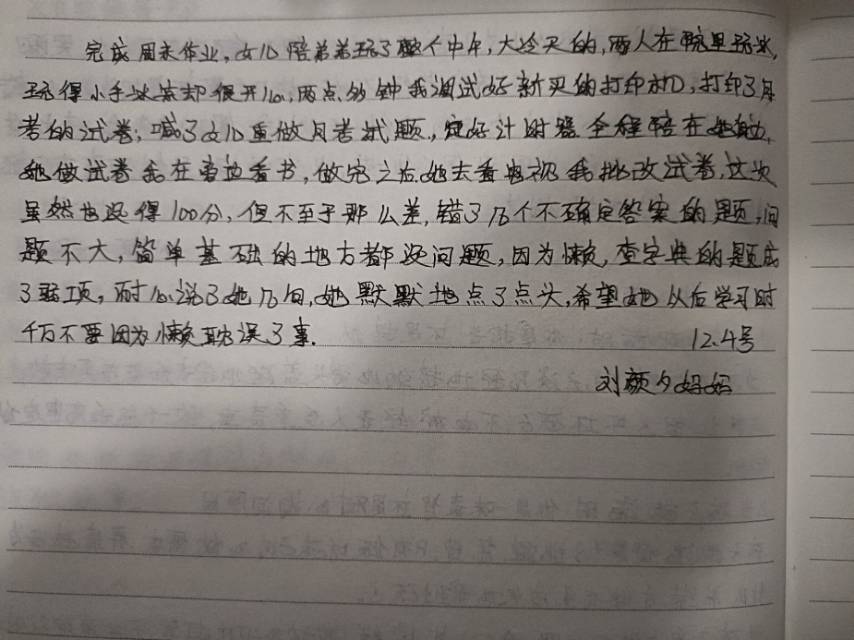 完成周末作业,女儿陪弟弟玩了整个中午,大冷天的,两人在院里玩冰,
玩得小手冰凉却很开心,两点多钟我调试好新买的打印机,打印了月
考的试卷;喊了女儿重做月考试题,定好计时器全程陪在她身边,
她做试卷我在旁边看书,做完之后她去看电视我批改试卷,这次
虽然也没得100分,但不至于那么差,错了几个不确定答案的题,问
题不大,简单基础的地方都没问题,因为懒,查字典的题成
了弱项,耐心说了她几句,她默默地点了点头,希望她以后学习时
千万不要因为懒耽误了事.
12.4号
刘颜夕妈妈